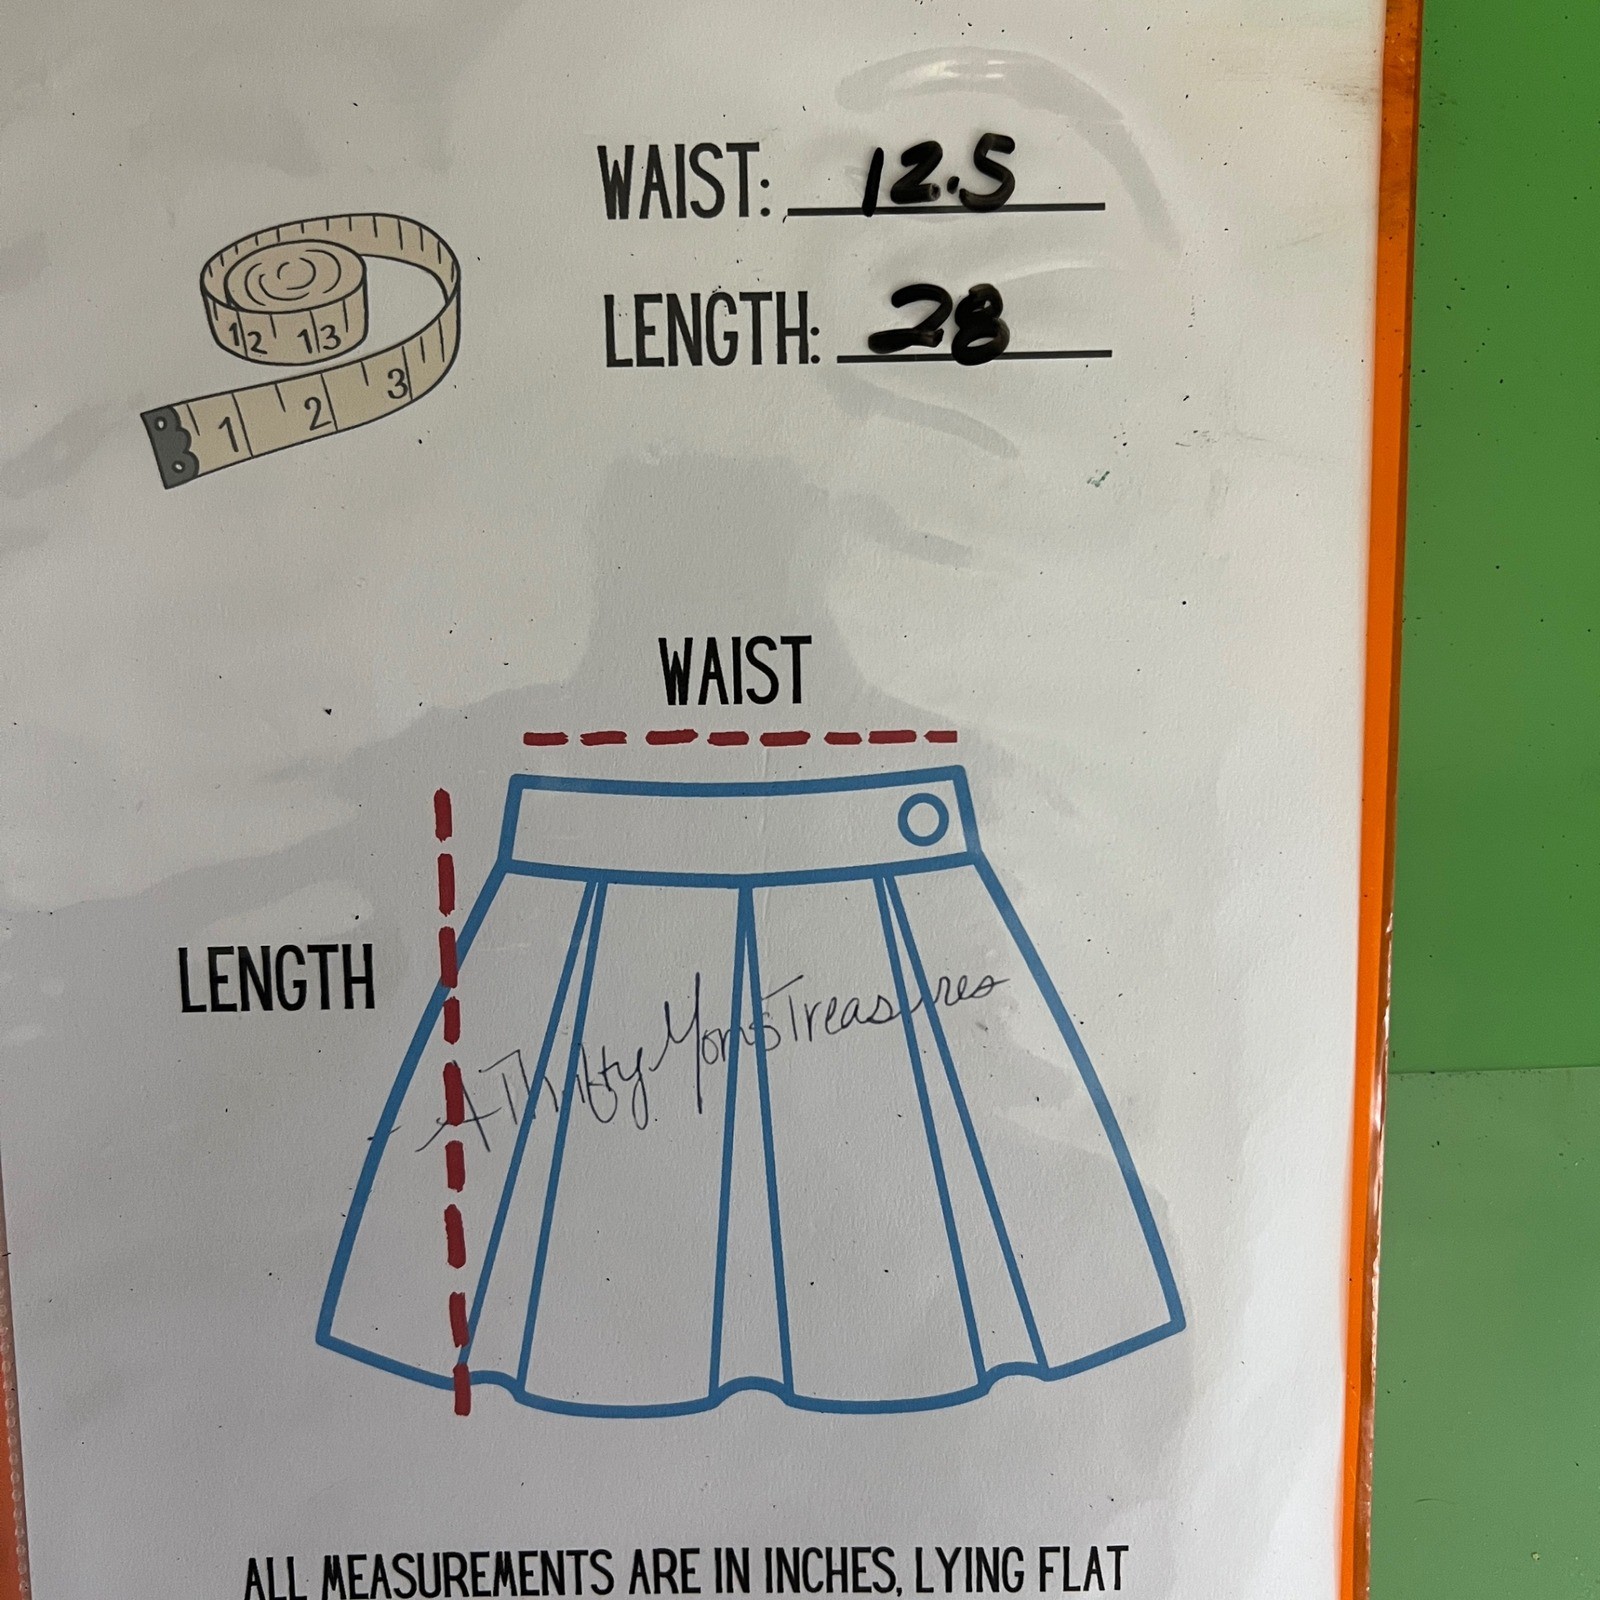 WAIST: 12.5
LENGTH: 28
12 13
1 2 3
WAIST
LENGTH
AThriftyMomsTreasures
ALL MEASUREMENTS ARE IN INCHES, LYING FLAT